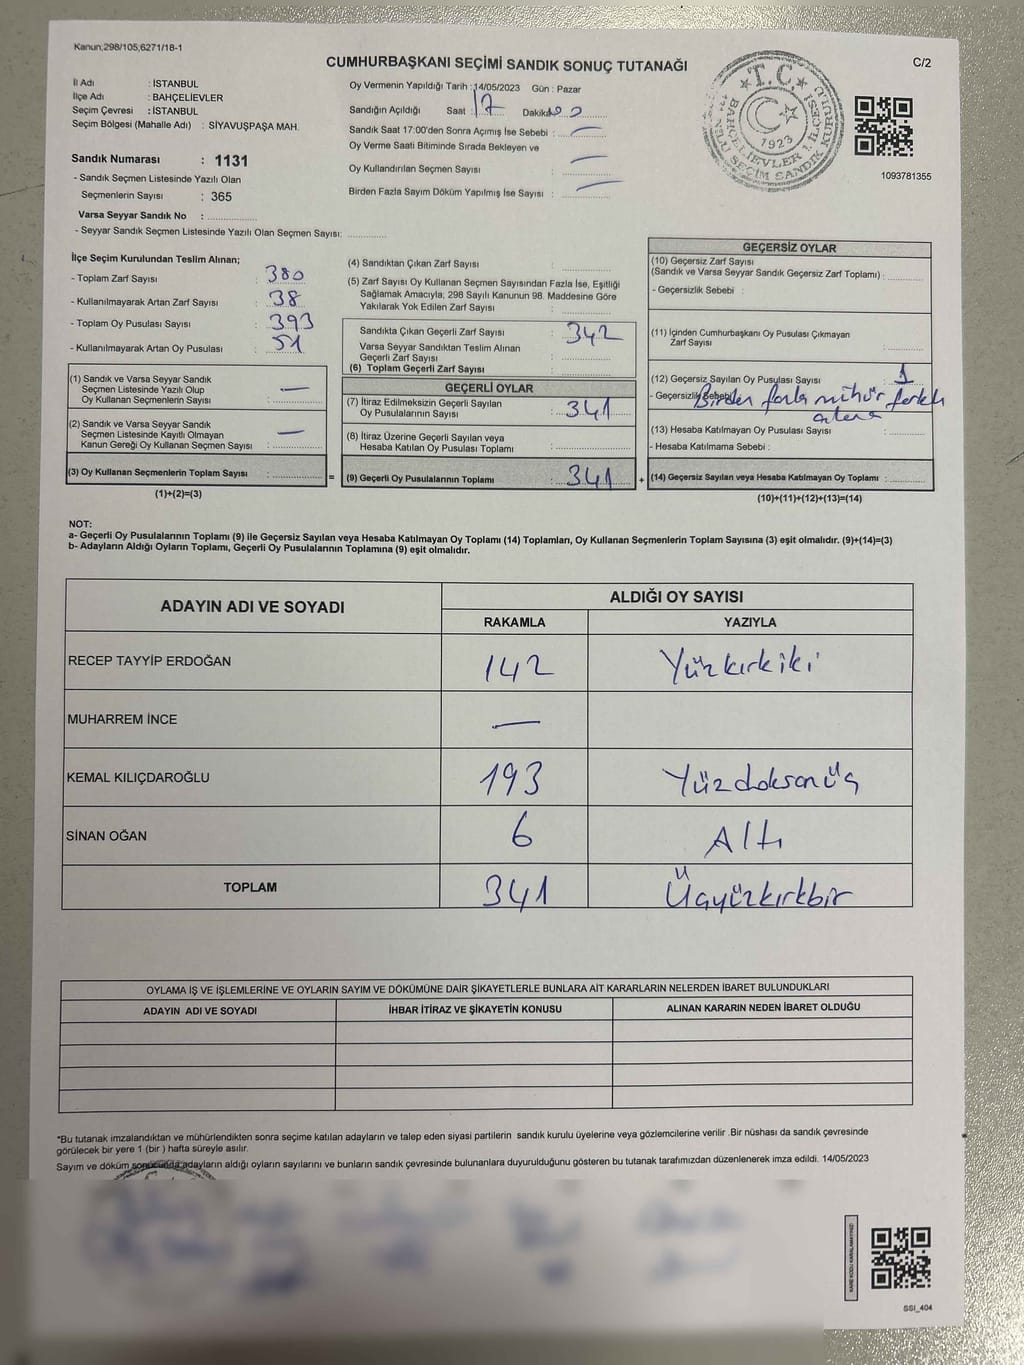 Kanun;298/105,6271/18-1
CUMHURBAŞKANI SEÇİMİ SANDIK SONUÇ TUTANAĞI
C/2
İl Adı : İSTANBUL
İlçe Adı : BAHÇELİEVLER
Seçim Çevresi : İSTANBUL
Seçim Bölgesi (Mahalle Adı) : SİYAVUŞPAŞA MAH.
Sandık Numarası : 1131
- Sandık Seçmen Listesinde Yazılı Olan
Seçmenlerin Sayısı : 365
Varsa Seyyar Sandık No :
- Seyyar Sandık Seçmen Listesinde Yazılı Olan Seçmen Sayısı:
Oy Vermenin Yapıldığı Tarih :14/05/2023 Gün : Pazar
Sandığın Açıldığı Saat : 17 Dakika 00
Sandık Saat 17:00'den Sonra Açımış İse Sebebi : —
Oy Verme Saati Bitiminde Sırada Bekleyen ve
Oy Kullandırılan Seçmen Sayısı : —
Birden Fazla Sayım Döküm Yapılmış İse Sayısı : —
T.C.
1923
1093781355
İlçe Seçim Kurulundan Teslim Alınan;
- Toplam Zarf Sayısı : 380
- Kullanılmayarak Artan Zarf Sayısı : 38
- Toplam Oy Pusulası Sayısı : 393
- Kullanılmayarak Artan Oy Pusulası : 51
(1) Sandık ve Varsa Seyyar Sandık
Seçmen Listesinde Yazılı Olup
Oy Kullanan Seçmenlerin Sayısı : —
(2) Sandık ve Varsa Seyyar Sandık
Seçmen Listesinde Kayıtlı Olmayan
Kanun Gereği Oy Kullanan Seçmen Sayısı : —
(3) Oy Kullanan Seçmenlerin Toplam Sayısı :
(1)+(2)=(3)
=
(4) Sandıktan Çıkan Zarf Sayısı :
(5) Zarf Sayısı Oy Kullanan Seçmen Sayısından Fazla İse, Eşitliği
Sağlamak Amacıyla; 298 Sayılı Kanunun 98. Maddesine Göre
Yakılarak Yok Edilen Zarf Sayısı :
Sandıkta Çıkan Geçerli Zarf Sayısı : 342
Varsa Seyyar Sandıktan Teslim Alınan
Geçerli Zarf Sayısı :
(6) Toplam Geçerli Zarf Sayısı :
GEÇERLİ OYLAR
(7) İtiraz Edilmeksizin Geçerli Sayılan
Oy Pusulalarının Sayısı : 341
(8) İtiraz Üzerine Geçerli Sayılan veya
Hesaba Katılan Oy Pusulası Toplamı :
(9) Geçerli Oy Pusulalarının Toplamı : 341
+
GEÇERSİZ OYLAR
(10) Geçersiz Zarf Sayısı
(Sandık ve Varsa Seyyar Sandık Geçersiz Zarf Toplamı) :
- Geçersizlik Sebebi :
(11) İçinden Cumhurbaşkanı Oy Pusulası Çıkmayan
Zarf Sayısı :
(12) Geçersiz Sayılan Oy Pusulası Sayısı : 1
- Geçersizlik Sebebi Birden fazla mühür farklı
(13) Hesaba Katılmayan Oy Pusulası Sayısı :
- Hesaba Katılmama Sebebi :
(14) Geçersiz Sayılan veya Hesaba Katılmayan Oy Toplamı :
(10)+(11)+(12)+(13)=(14)
NOT:
a- Geçerli Oy Pusulalarının Toplamı (9) ile Geçersiz Sayılan veya Hesaba Katılmayan Oy Toplamı (14) Toplamları, Oy Kullanan Seçmenlerin Toplam Sayısına (3) eşit olmalıdır. (9)+(14)=(3)
b- Adayların Aldığı Oyların Toplamı, Geçerli Oy Pusulalarının Toplamına (9) eşit olmalıdır.
ADAYIN ADI VE SOYADI
ALDIĞI OY SAYISI
RAKAMLA YAZIYLA
RECEP TAYYİP ERDOĞAN 142 Yüzkırkiki
MUHARREM İNCE —
KEMAL KILIÇDAROĞLU 193 Yüzdoksanüç
SİNAN OĞAN 6 Altı
TOPLAM 341 Üçyüzkırkbir
OYLAMA İŞ VE İŞLEMLERİNE VE OYLARIN SAYIM VE DÖKÜMÜNE DAİR ŞİKAYETLERLE BUNLARA AİT KARARLARIN NELERDEN İBARET BULUNDUKLARI
ADAYIN ADI VE SOYADI İHBAR İTİRAZ VE ŞİKAYETİN KONUSU ALINAN KARARIN NEDEN İBARET OLDUĞU
*Bu tutanak imzalandıktan ve mühürlendikten sonra seçime katılan adayların ve talep eden siyasi partilerin sandık kurulu üyelerine veya gözlemcilerine verilir .Bir nüshası da sandık çevresinde
görülecek bir yere 1 (bir ) hafta süreyle asılır.
Sayım ve döküm sonucunda adayların aldığı oyların sayılarını ve bunların sandık çevresinde bulunanlara duyurulduğunu gösteren bu tutanak tarafımızdan düzenlenerek imza edildi. 14/05/2023
KARE KODU KARALAMAYINIZ!
SSI_404